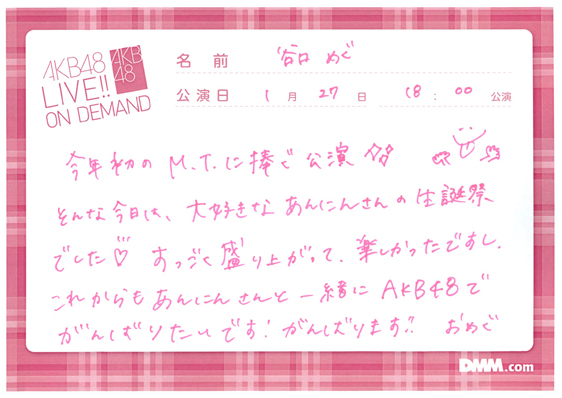 AKB48
LIVE!!
ON DEMAND
AKB
48
名前 谷口 めぐ
公演日 1月27日 18:00 公演
今年初の M.T.に捧ぐ 公演
そんな今日は、大好きな あんにんさんの 生誕祭
でした♡ すっごく 盛り上がって、楽しかったですし、
これからも あんにんさんと 一緒に AKB48で
がんばりたいです! がんばります!! おめぐ
DMM.com